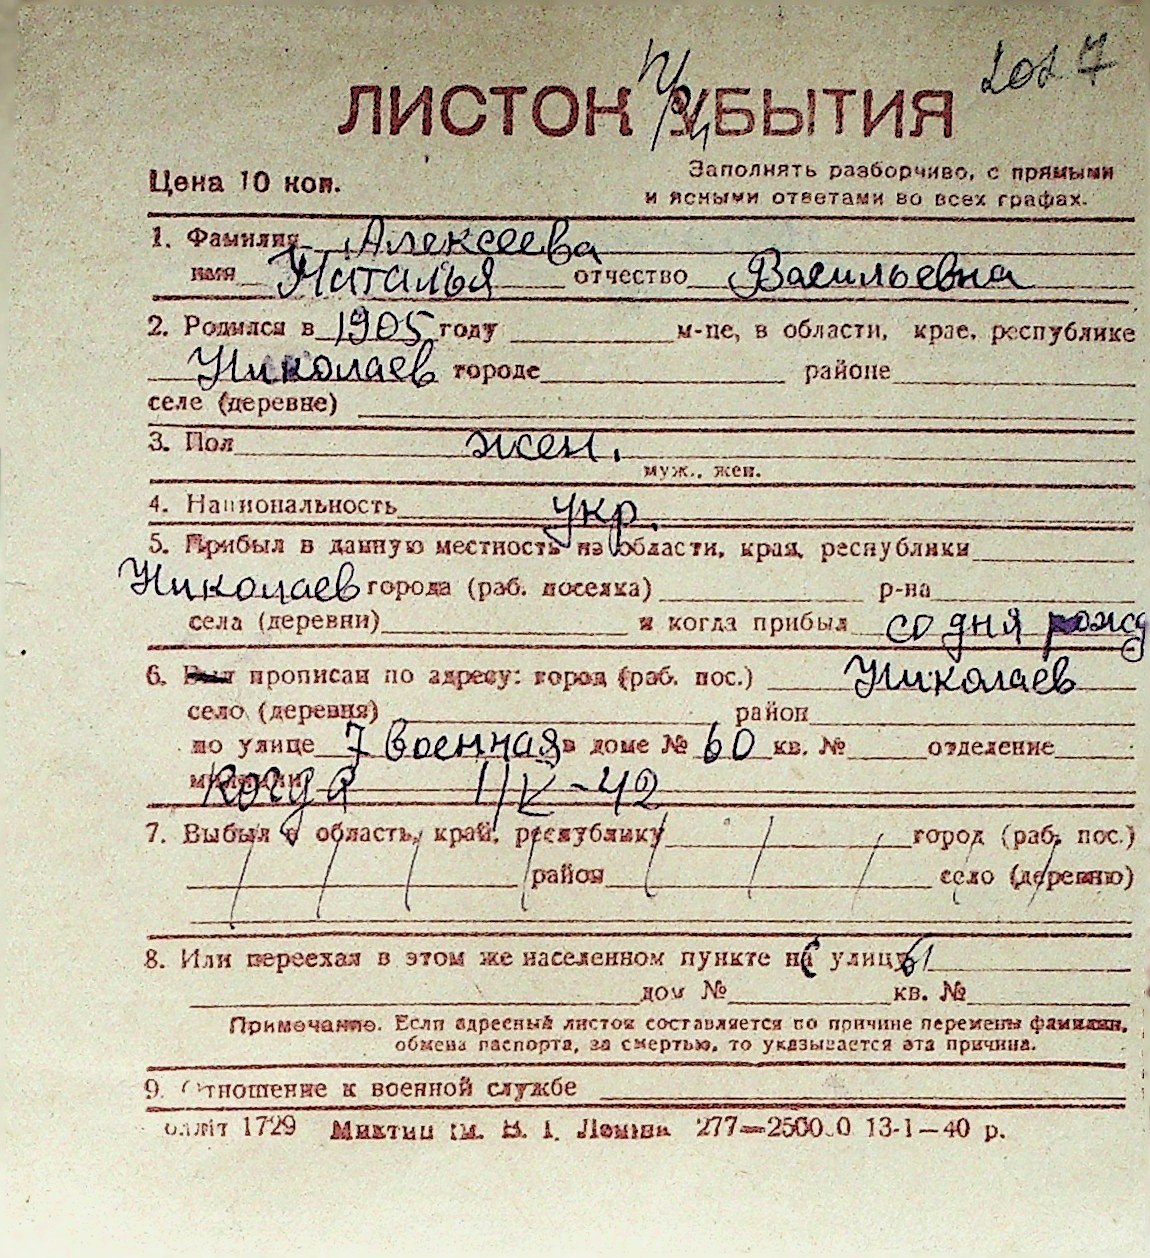 ЛИСТОК УБЫТИЯ
Цена 10 коп.
Заполнять разборчиво, с прямыми
и ясными ответами во всех графах.
1. Фамилия Алексеева
имя Наталья отчество Васильевна
2. Родился в 1905 году м-це, в области, крае, республике
Николаев городе районе
селе (деревне)
3. Пол жен.
муж., жен.
4. Национальность укр.
5. Прибыл в данную местность из области, края, республики
Николаев города (раб. поселка) р-на
села (деревни) и когда прибыл со дня рожд
6. Был прописан по адресу: город (раб. пос.) Николаев
село (деревня) район
по улице 7 Военная в доме № 60 кв. № отделение
милиции когда 1/X-42
7. Выбыл в область, край, республику город (раб. пос.)
район село (деревню)
8. Или переехал в этом же населенном пункте на улицу
дом № кв. №
Примечание. Если адресный листок составляется по причине перемены фамилии,
обмена паспорта, за смертью, то указывается эта причина.
9. Отношение к военной службе
1729 им. В. І. Леніна 13-1—40 р.